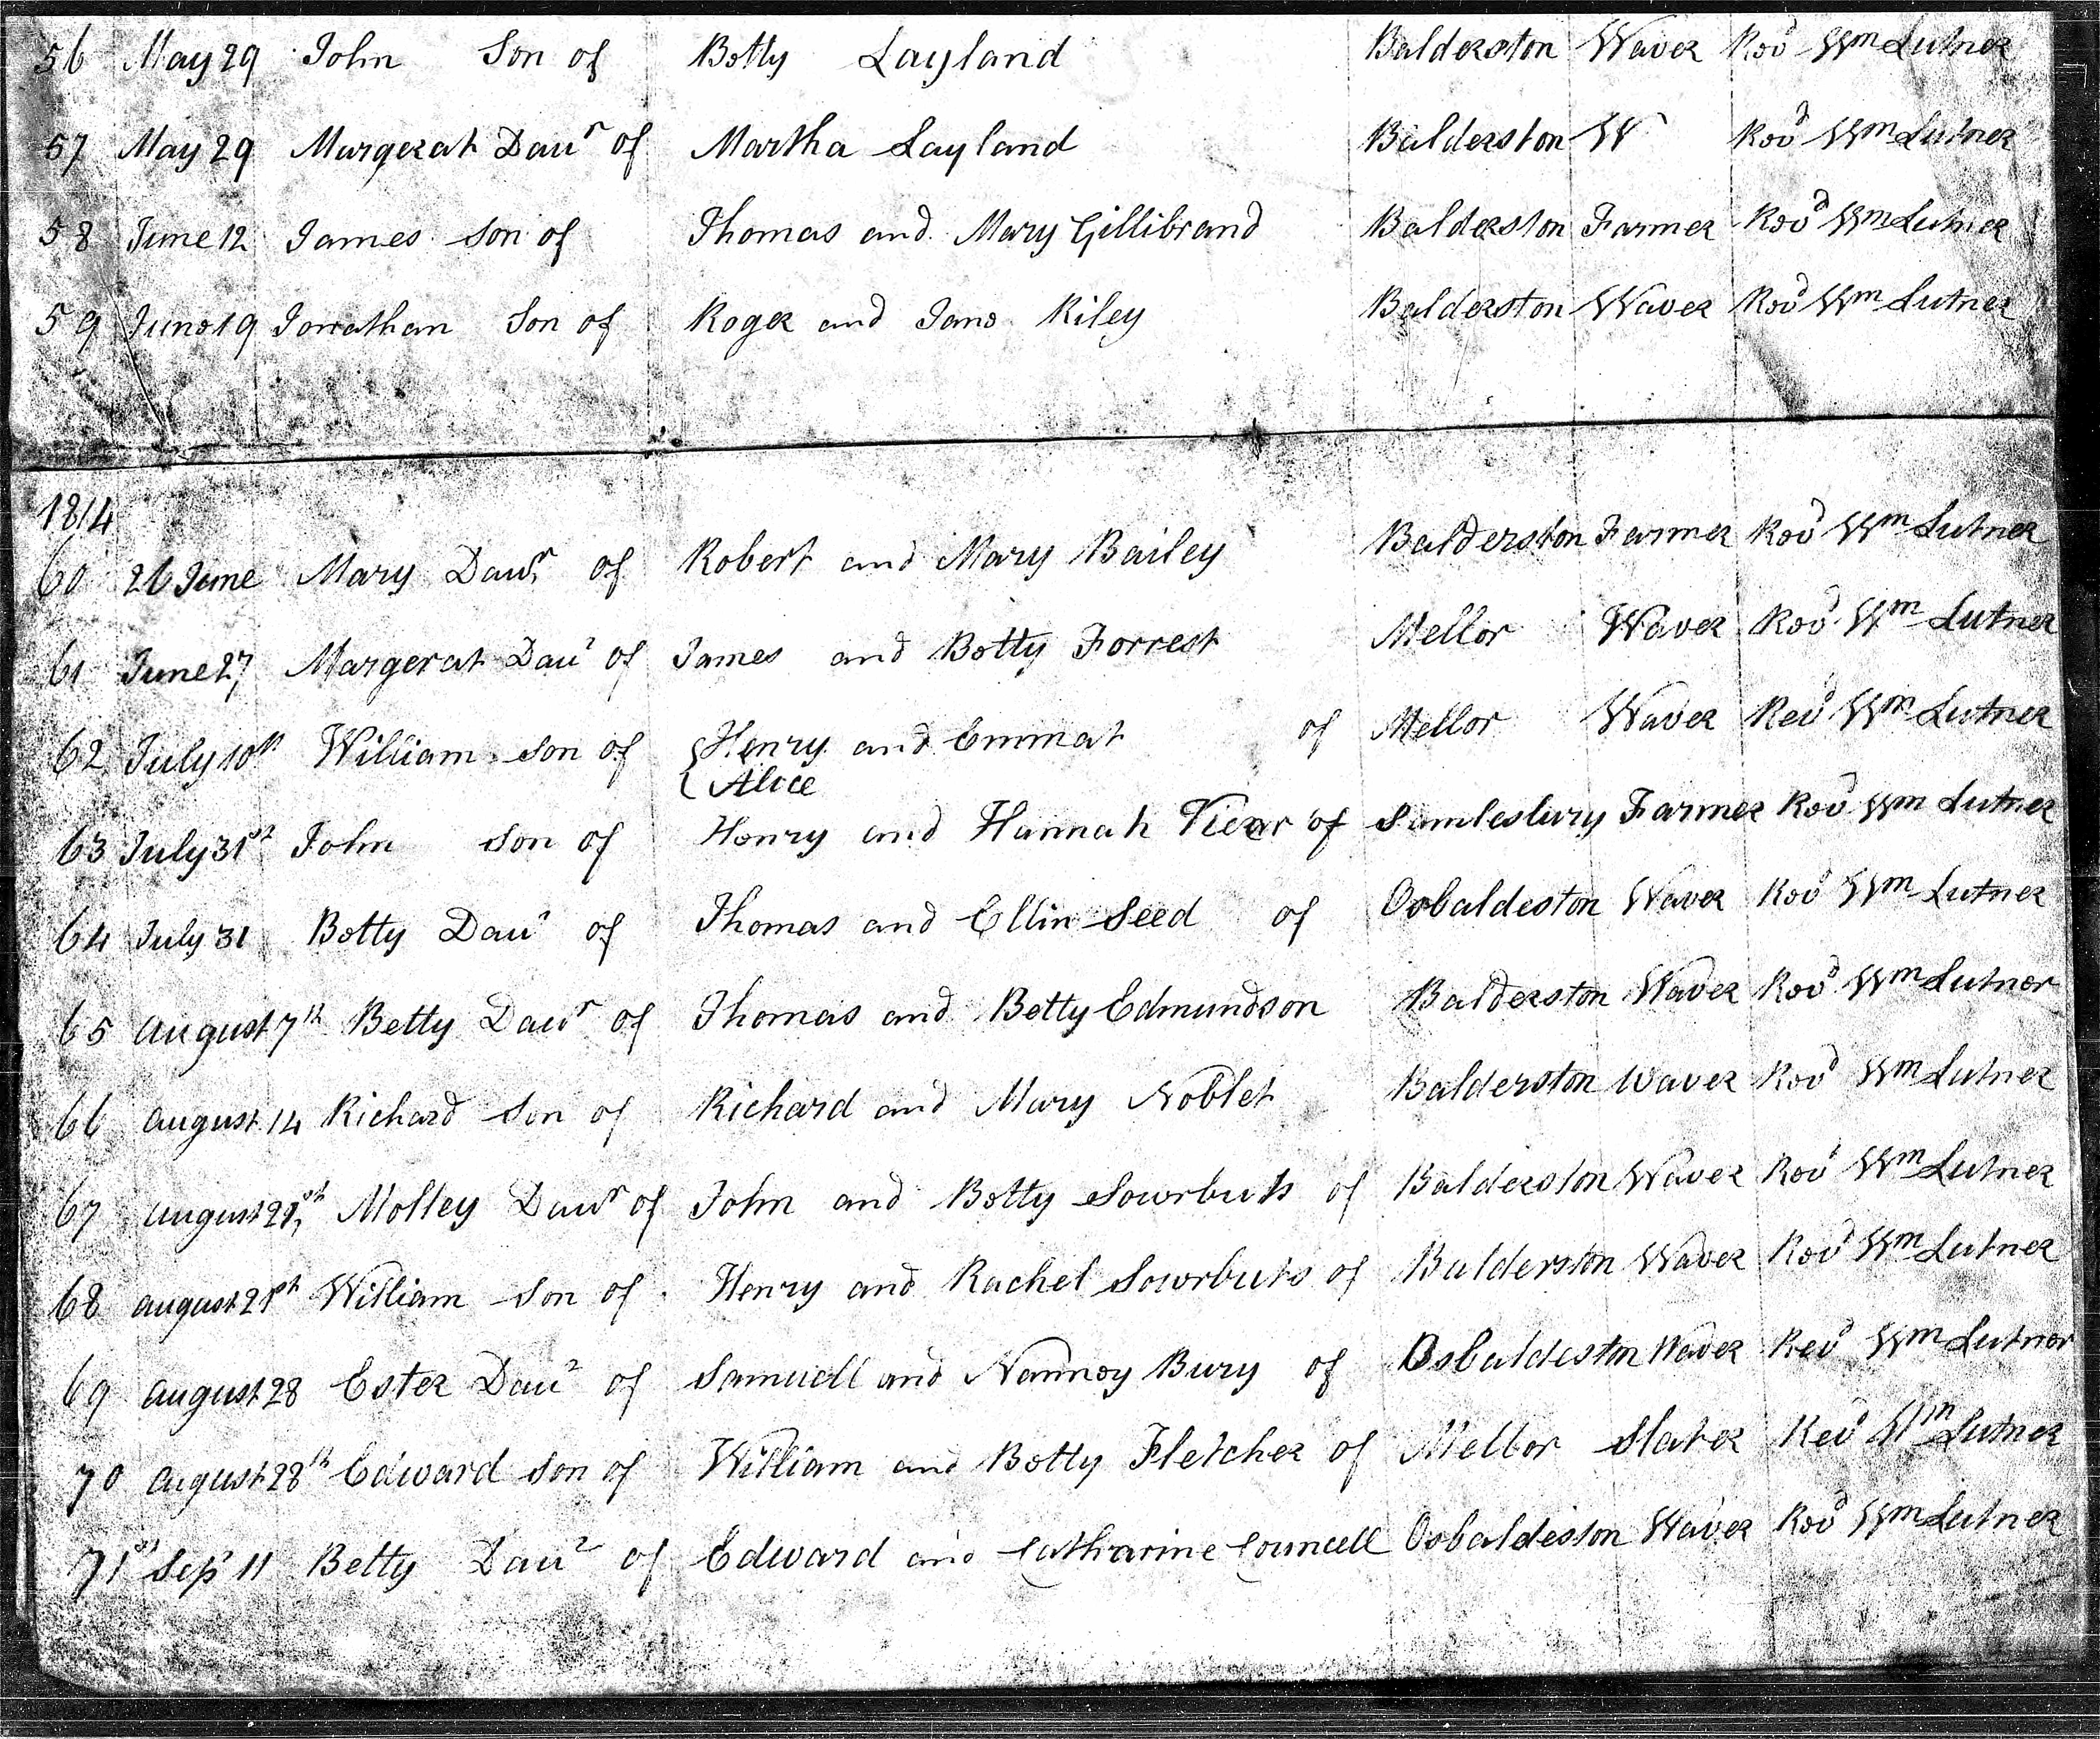 56 May 29 John Son of Betty Layland Balderston Waver Rev^d W^m Lutner
57 May 29 Margerat Dau^r of Martha Layland Balderston W Rev^d W^m Lutner
58 June 12 James son of Thomas and Mary Gillibrand Balderston Farmer Rev^d W^m Lutner
59 June 19 Jonathan Son of Roger and Jane Riley Balderston Waver Rev^d W^m Lutner
1814
60 26 June Mary Dau^r of Robert and Mary Bailey Balderston Farmer Rev^d W^m Lutner
61 June 27 Margerat Dau^r of James and Betty Forrest Mellor Waver Rev^d W^m Lutner
62 July 10^th William son of Henry and Emmat of Mellor Waver Rev^d W^m Lutner
Alice
63 July 31^st John son of Henry and Hannah Vicar of Samlesbury Farmer Rev^d W^m Lutner
64 July 31 Betty Dau^r of Thomas and Ellin Seed of Osbaldeston Waver Rev^d W^m Lutner
65 August 7^th Betty Dau^r of Thomas and Betty Edmundson Balderston Waver Rev^d W^m Lutner
66 August 14 Richard Son of Richard and Mary Noblet Balderston Waver Rev^d W^m Lutner
67 August 21^st Molley Dau^r of John and Betty Sowrbuts of Balderston Waver Rev^d W^m Lutner
68 August 21^st William Son of Henry and Rachel Sowrbuts of Balderston Waver Rev^d W^m Lutner
69 August 28 Ester Dau^r of Samuell and Nanney Bury of Osbaldeston Waver Rev^d W^m Lutner
70 August 28^th Edward son of William and Betty Fletcher of Mellor Slater Rev^d W^m Lutner
71^st Sep^r 11 Betty Dau^r of Edward and Catharine Councell Osbaldeston Waver Rev^d W^m Lutner